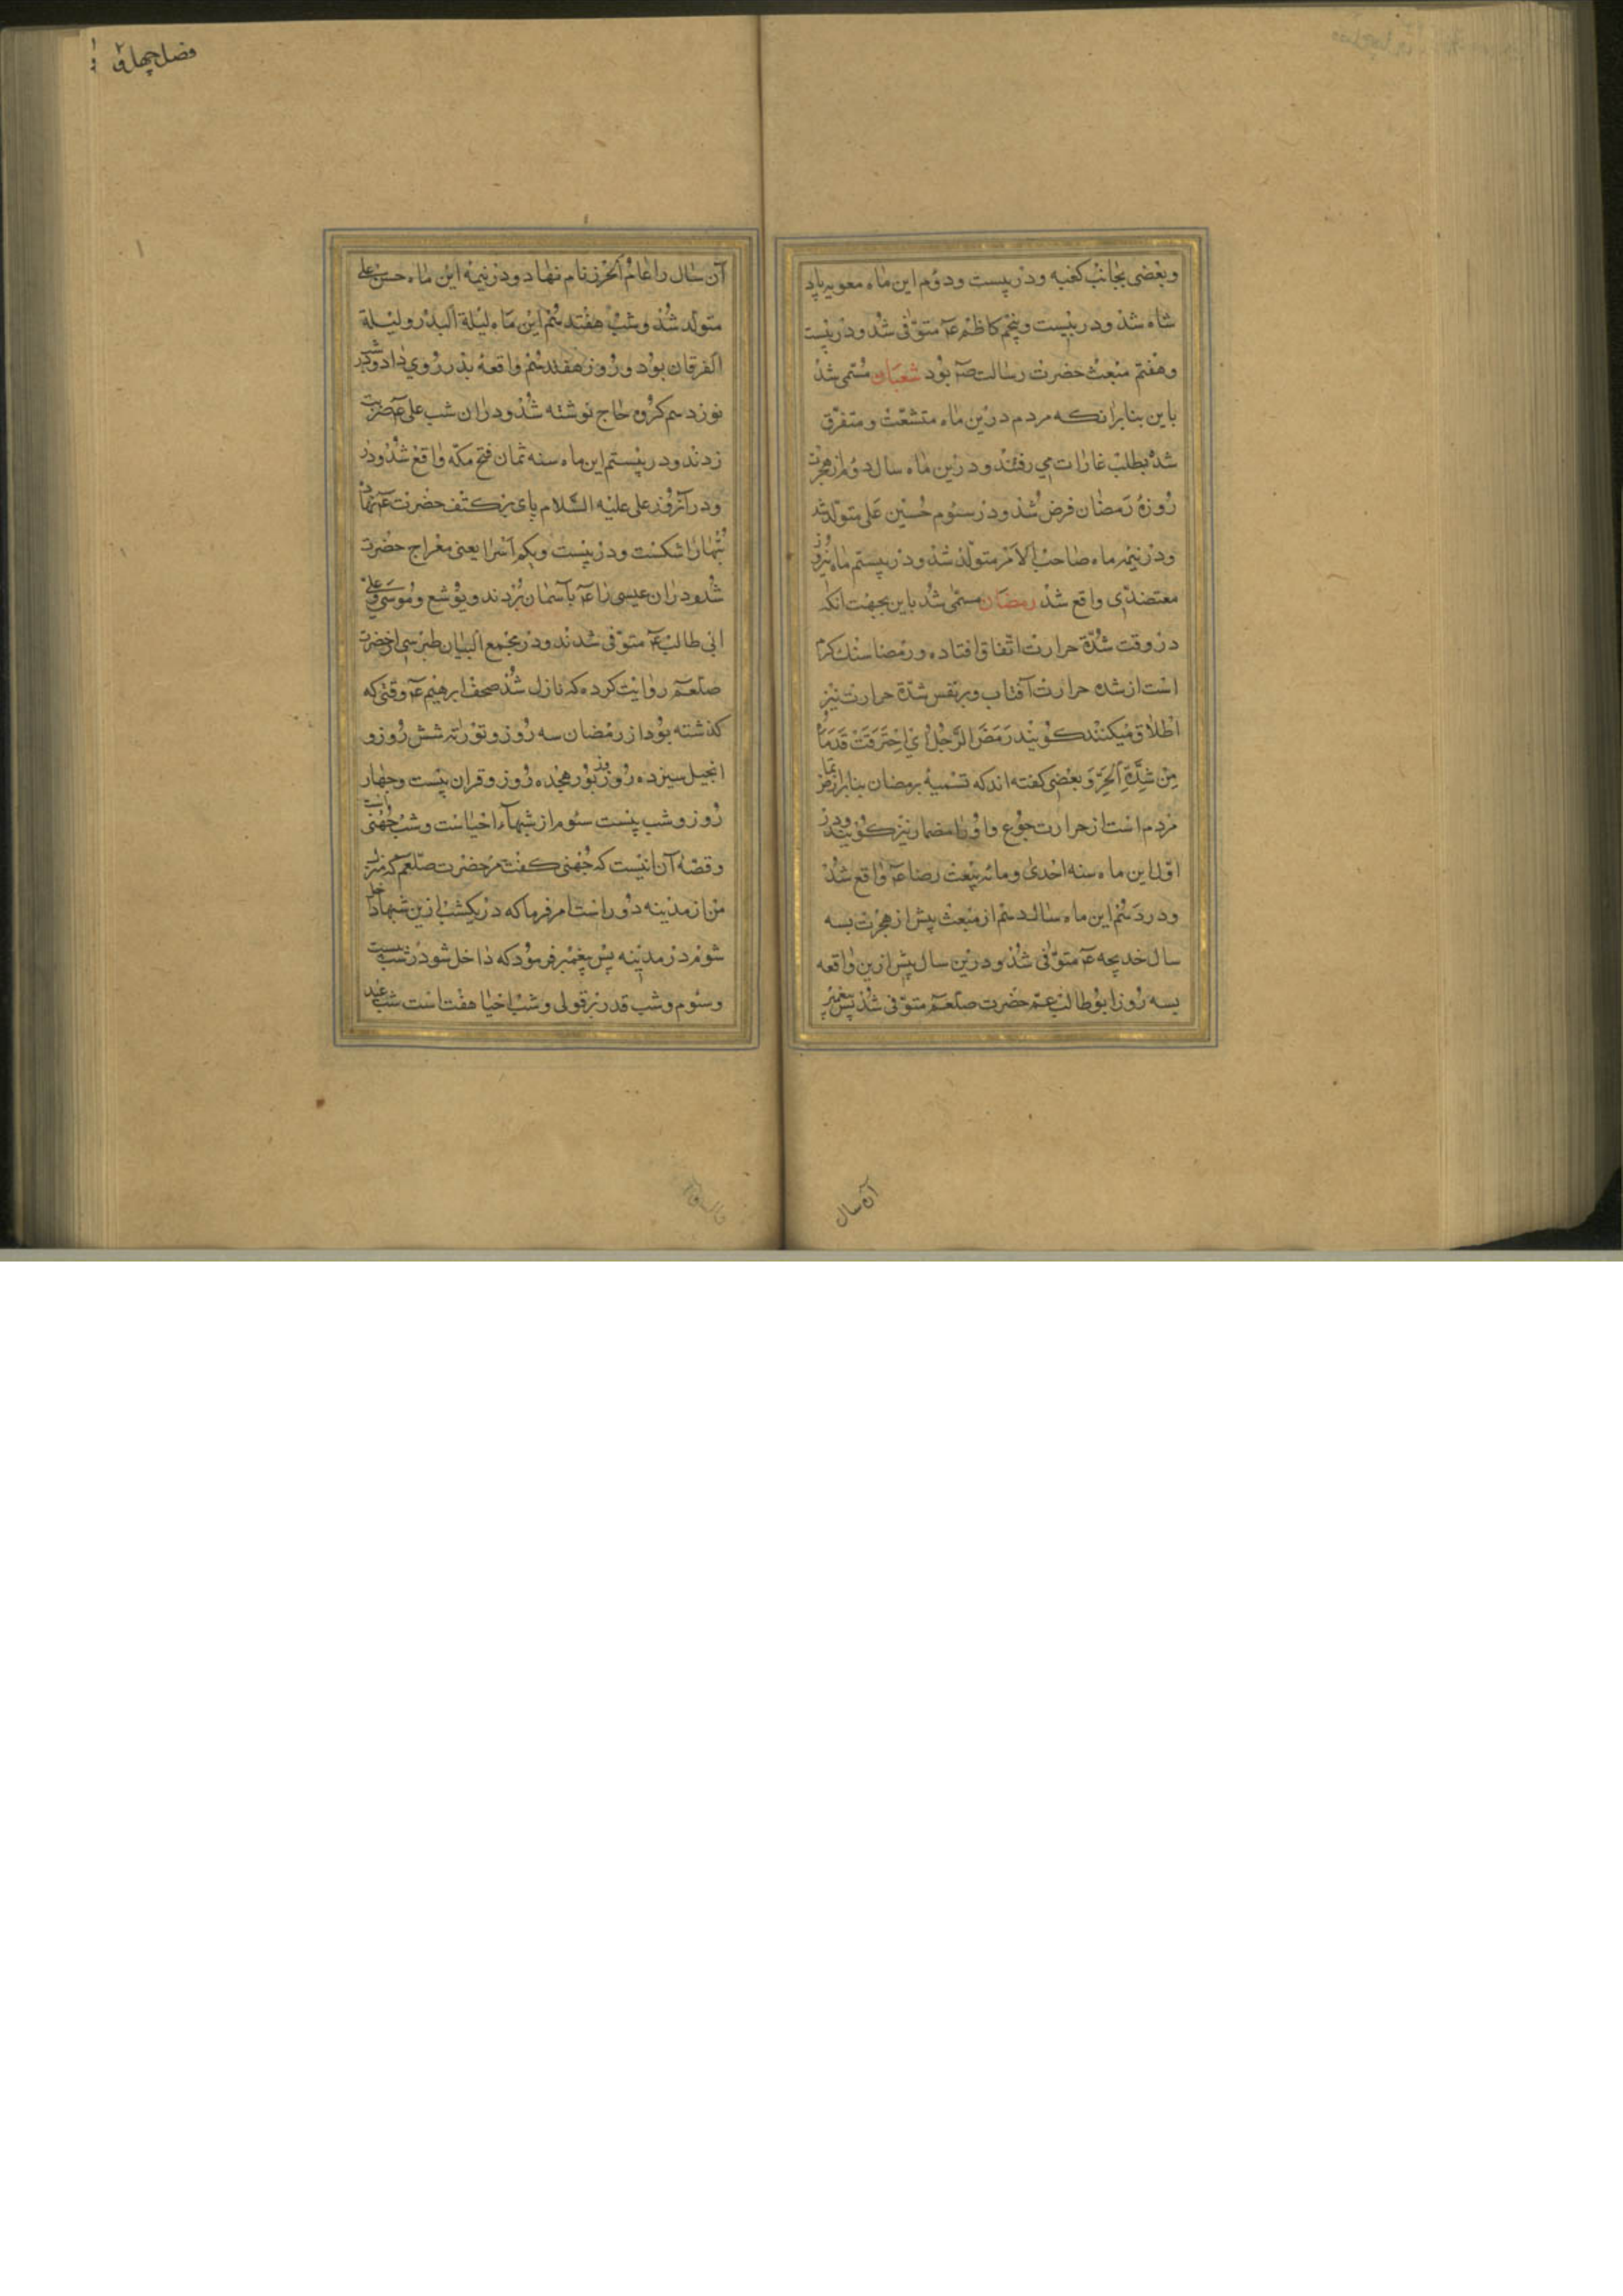 وبعضی بجانب کعبه ودر بیست ودوم این ماه معویه پاد
شاه شد ودر بیست وپنجم کاظم عم متوفی شد ودر بیست
وهفتم مبعث حضرت رسالت صم بود شعبان مسمی شد
باین بنابرانکه مردم درین ماه متشعّث ومتفرق
شده بطلب غارات می رفتند ودرین ماه سال دوم از هجرت
روزهٔ رمضان فرض شد ودر سوم حسین علی متولد شد
ودر نیمه ماه صاحب الامر متولد شد ودر بیستم ماه نیروز
معتضدی واقع شد رمضان مسمی شد باین بجهت انکه
در وقت شدّة حرارت اتفاق افتاده ورمضا سنک کرم
است از شده حرارت آفتاب وبر نفس شدّة حرارت نیز
اطلاق میکنند کویند رَمَضَ الرَّجُلُ ای اِحْتَرَقَتْ قَدَمَاهُ
مِنْ شِدَّةِ الحَرِّ وبعضی کفته اند که تسمیهٔ برمضان بنابر ارتماض
مردم است از حرارت جوع واو را مضمار نیز کویند ودر
اول این ماه سنه احدی ومائه بیعت رضا عم واقع شد
ودر دهم این ماه سال دهم از مبعث پیش از هجرت بسه
سال خدیجه عم متوفی شد ودرین سال پیش ازین واقعه
بسه روز ابو طالب عم حضرت صلعم متوفی شد پس پیغمبر
آن سال
فصل چهل و
آن سال را عام الحزن نام نهاد ودر نیمه این ماه حسن علی
متولد شد وشب هفتدهم این ماه لیلة البدر ولیلة
الفرقان بود وروز هفتدهم واقعهٔ بدر روی داد ودر شب
نوزدهم کروه حاج نوشته شد ودران شب علی عم ضربت
زدند ودر بیستم این ماه سنه ثمان فتح مکه واقع شد ودر
ودر آنروز علی علیه السلام پای بر کتف حضرت عم نهاد
بتهارا شکست ودر بیست ویکم اسرا یعنی معراج حضرت
شد ودران عیسی را عم بآسمان بردند ویوشع وموسی وعلی
ابی طالب عم متوفی شدند ودر مجمع البیان طبرسی از حضرت
صلعم روایت کرده که نازل شد صحف ابرهیم عم وقتی که
کذشته بود از رمضان سه روز وتوراته شش روز و
انجیل سیزده روز وزبور هجده روز وقران بیست وچهار
روز وشب بیست سوم از شبهاء احیاست وشب جهنی است
وقصهٔ آن اینست که جهنی کفت مر حضرت صلعم که منزل
من از مدینه دور است امر فرما که در یکشب ازین شبها داخل
شوم در مدینه پس پیغمبر فرمود که داخل شو در شب بیست
وسوم وشب قدر بر قولی وشب احیا هفت است شب عید